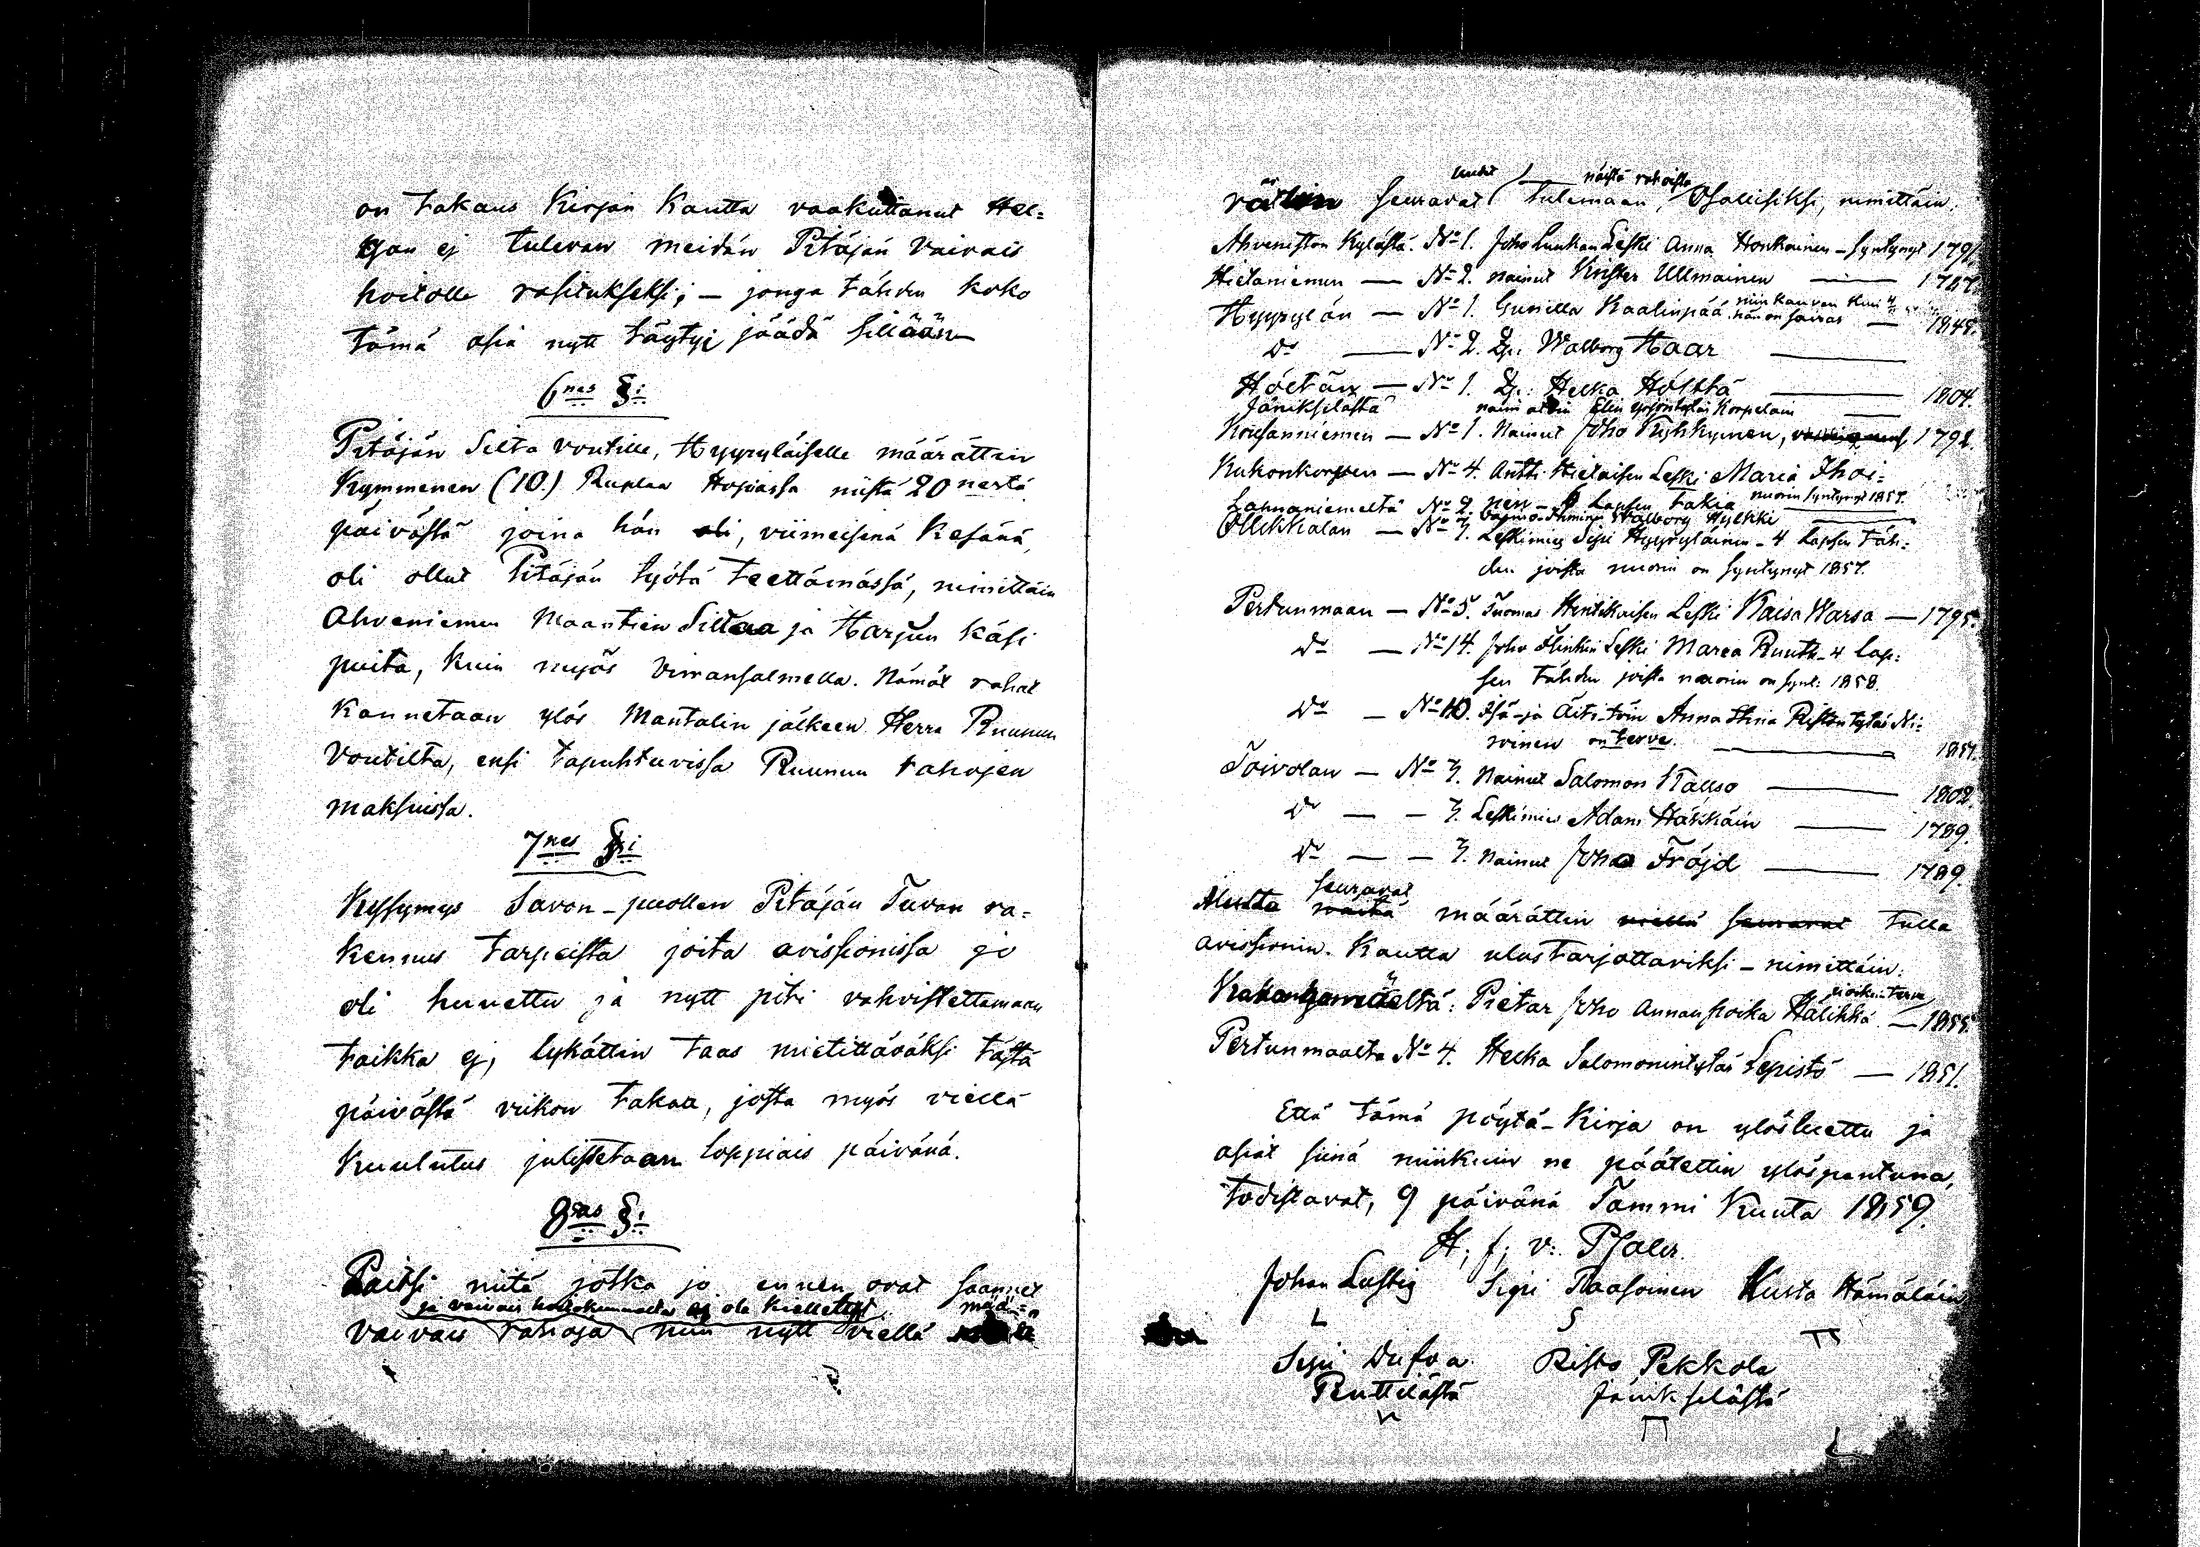 on takaus Kirjan Kautta vaakuttanut Hel-
gan ej tulevan meidän Pitäjän Vaivais
hoitolle rasitukseksi; – jonga tähden koko
tämä asia nytt täytyi jäädä sillään
6nes §:
Pitäjän Silta voutille, Hyyryläiselle määrättin
Kymmenen (10.) Ruplaa Hopiassa niistä 20 nestä
päivästä joina hän oli, viimeisenä Kesänä,
oli ollut Pitäjän työtä teettämässä, nimittäin
Ahveniemen Maantien Siltaa ja Harjun Käsi
puita, kuin myös Virransalmella. Nämät rahat
Kannetaan ylös Mantalin jälkeen Herra Ruunun
Voutilta, ensi tapahtuvissa Ruunun rahojen
maksuissa.
7nes §:
Kysymys Savon-puollen Pitäjän Tuvan ra-
kennus tarpeista joita avissionissa jo
oli huuettu ja nytt piti vahvistettamaan
taikka ej, lykättin taas mietittäväksi tästä
päivästä viikon takaa, josta myös viellä
Kuulutus julistetaan loppiais päivänä.
8sas §:
Paitsi niitä jotka jo ennen ovat saannet
ja vaivais ej ole kielletyt mää-
vaivais rahoja niin nytt viellä
rättin seuravat uudet tulemaan näistä rahoista Osallisiksi, nimittäin:
Ahveniston Kylästä. No 1. Joho Luukan Leski Anna Honkainen – Syntynyt 1791.
Hietaniemen — No 2. nainut Krister Ullmainen — 1767.
Hyyrylän — No 1. Gunilla Kaalinpää niin kauvan kuin hän on sairas — 1848.
Do — No 2. Walborg Haar —
Höltän — No 1. Helka Hölttä — 1804.
Jänikselästä Korpelain —
Koisanniemen — No 1. Nainut Joho Tyhkynen, 1792.
Kukonkorpen — No 4. Antti Hietaisen Leski Maria Ihoi-
Lahnaniemeltä No 2. nen – Lapsen takia nuorin syntynyt 1857.
Walborg Hylkki —
Ollikkalan — No 7. Leskimies Sipi Hyyryläinen – 4 Lapsen täh-
den joista nuorin on Syntynyt 1857.
Pertunmaan — No 5. Tuomas Hintikaisen Leski Kaisa Warsa — 1795.
Do — No 14. Joho Flinkin Leski Maria Ruuth – 4 Lap-
sen tähden joista nuorin on synt: 1858.
Do — No 10. Isä- ja Äiti-töin Anna Stina Ristontytär Ni-
roinen on terve. — 1851.
Toivolan — No 7. Nainut Salomon Kallso — 1802.
Do — – 7. Leskimies Adam Häkkäin — 1789.
Do — – 7. Nainut Joho Fröjd — 1789.
Mutta seuravat määrättin viellä seuravat tulla
avissionin Kautta ulostarjottaviksi – nimittäin:
Pietar Joho Annanpoika Hälikkä — 1855.
Pertunmaalta No 4. Helka Salomonintytär Lepistö — 1851.
Että tämä pöytä-Kirja on ylösluettu ja
asiat siinä niinkuin ne päätettin ylöspantuna,
todistavat, 9 päivänä Tammi Kuuta 1859.
H. f. v. Pfaler
Johan Lustig Sipi Paasonen Kusta Hämäläin
Sipi Dufva Risto Pekkola
Ruttilästä Jänikselästä